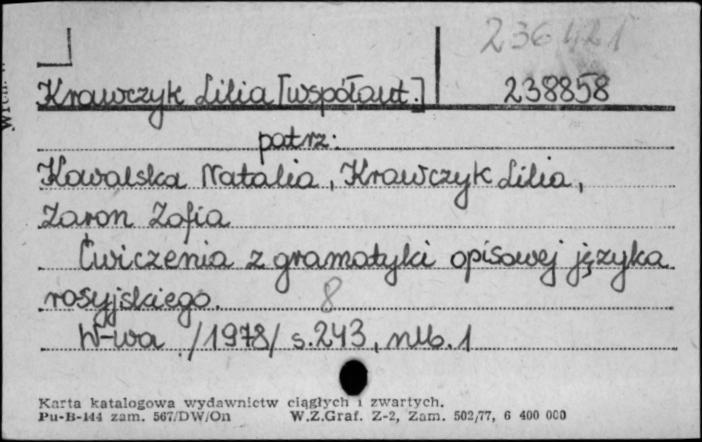 236421
Krawczyk Lilia [współaut.] 238858
patrz:
Kowalska Natalia, Krawczyk Lilia,
Zaron Zofia
Ćwiczenia z gramatyki opisowej języka
rosyjskiego. 8
W-wa /1978/ s. 243, nlb. 1
Karta katalogowa wydawnictw ciągłych i zwartych.
Pu-B-144 zam. 567/DW/On W.Z.Graf. Z-2, Zam. 502/77, 6 400 000